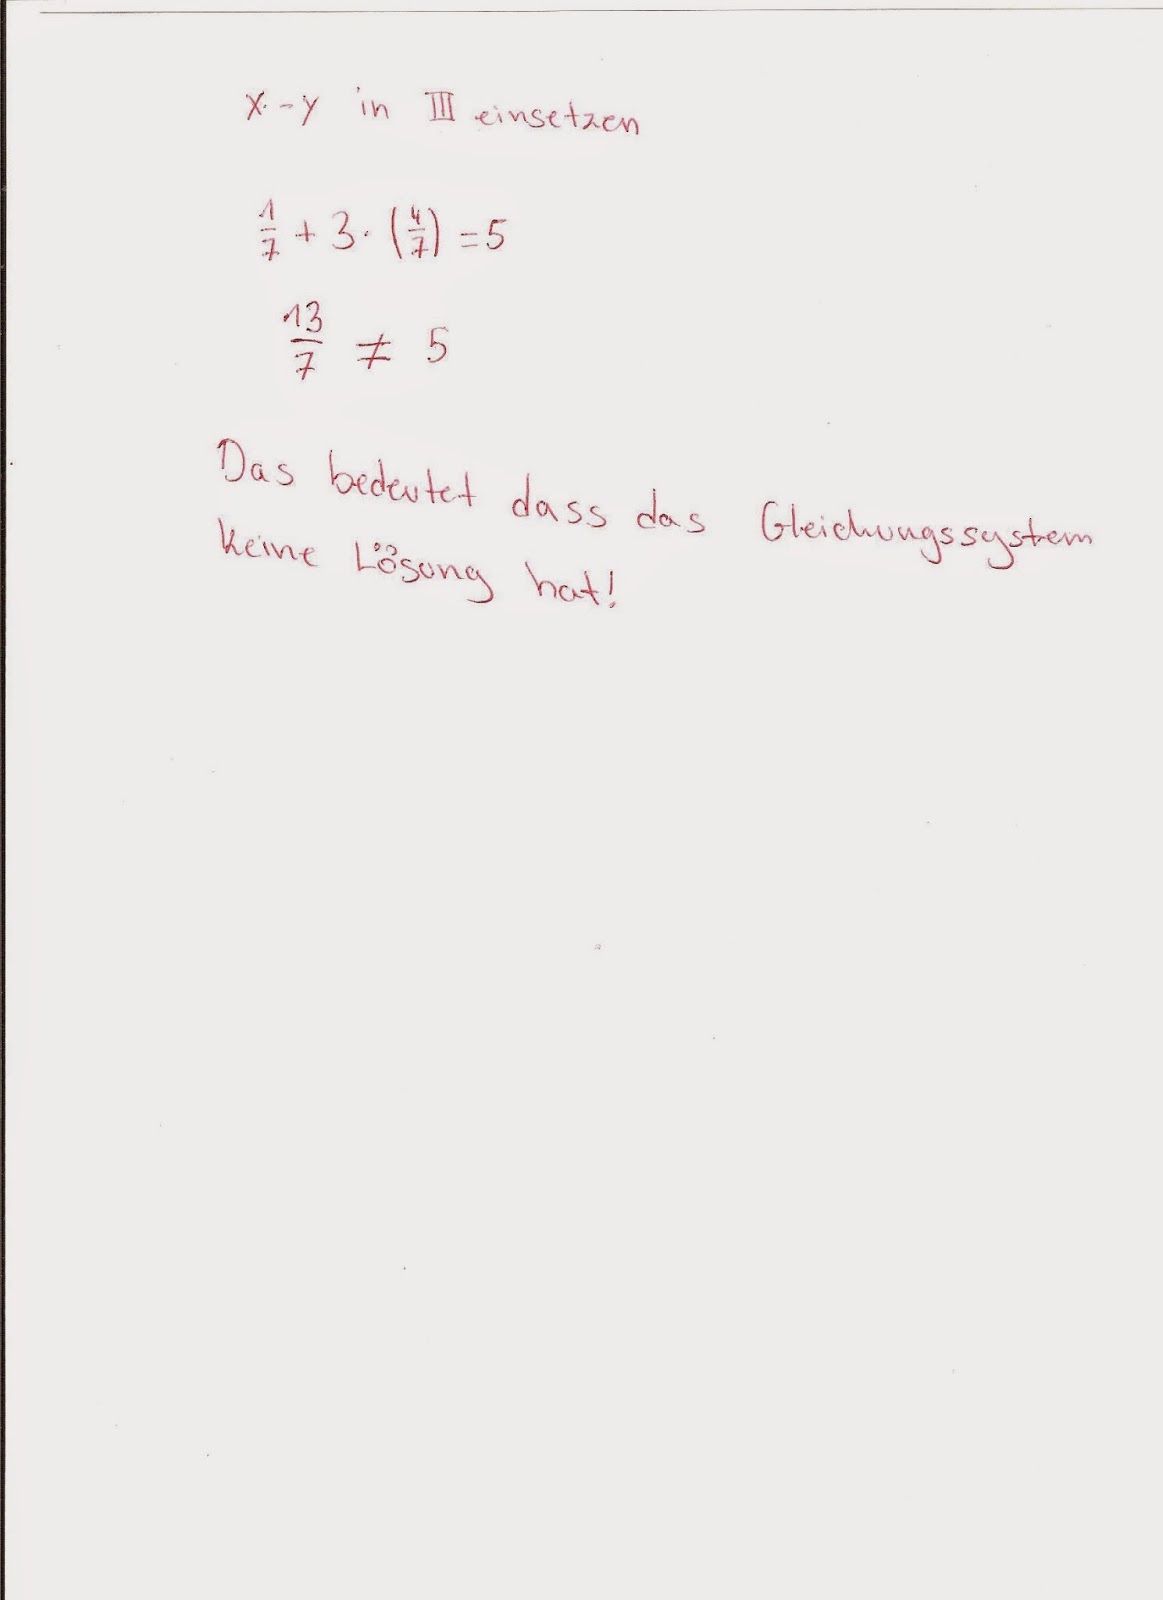 x-y in III einsetzen
1/7 + 3·(4/7) = 5
13/7 ≠ 5
Das bedeutet dass das Gleichungssystem
keine Lösung hat!